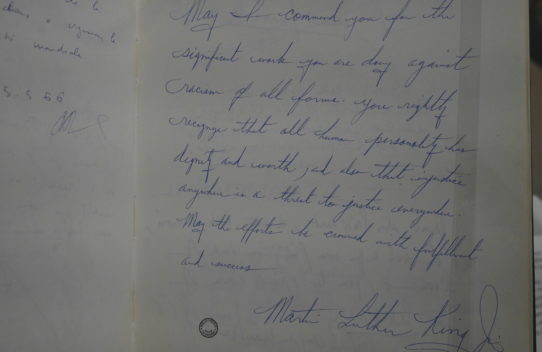 May I commend you for the
significant work you are doing against
racism of all forms. You rightly
recognize that all human personality has
dignity and worth, and also that injustice
anywhere is a threat to justice everywhere.
May the efforts be crowned with fulfillment
and success
Martin Luther King Jr.